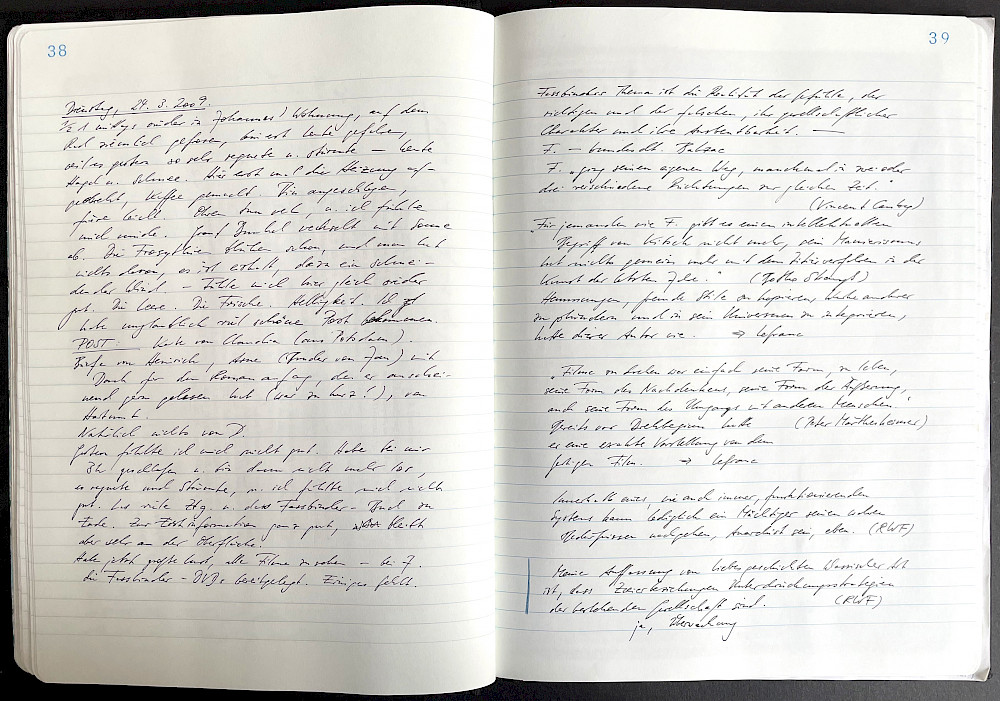 38
Dienstag, 24. 3. 2009.
½ 1 mittags wieder in Johannes' Wohnung, auf dem
Rad gefahren, bin erst heute gefahren,
weil es gestern so sehr regnete u. stürmte – heute
Hagel u. Schnee. Hier erst mal die Heizung auf-
gedreht, Kaffee gemacht. Bin angeschlagen,
friere leicht. Ohren tun weh, u. ich fühlte
mich müde. Dunkel wechselt mit Sonne
ab. Die Forsythien blühen schon, und man hat
nichts davon, es ist eiskalt, dazu ein schnei-
dender Wind. – Fühle mich hier gleich wieder
gut. Die Leere. Die Frische. Helligkeit.
Habe unglaublich viel schöne Post bekommen.
POST: Karte von Claudia (aus Potsdam).
Briefe von Heinrich, Arne (Bruder von Jan) mit
Dank für den Romananfang, den er anschei-
nend gern gelesen hat (war zu kurz!), von
Hartmut.
Natürlich nichts von D.
Gestern fühlte ich mich nicht gut. Habe bei mir
geschlafen u. bin dann nicht mehr los,
es regnete und stürmte, u. ich fühlte mich nicht
gut. Las viele Ztg. u. das Fassbinder-Buch zu
Ende. Zur Erstinformation ganz gut, bleibt
aber sehr an der Oberfläche.
Habe jetzt große Lust, alle Filme zu sehen – bei J.
die Fassbinder-DVDs bereitgelegt. Einiges fehlt.
39
Fassbinders Thema ist die Realität der Gefühle, der
richtigen und der falschen, ihr gesellschaftlicher
Charakter und ihre Ausbeutbarkeit. —
F. – bundesdt. Balzac
F. „ging seinen eigenen Weg, manchmal in zwei oder
drei verschiedene Richtungen zur gleichen Zeit."
(Vincent Canby)
„Für jemanden wie F. gibt es einen intellektuellen
Begriff von Kitsch nicht mehr, sein Manierismus
hat nichts gemein mehr mit dem Zitierverfahren in der
Kunst der letzten Jahre." (Botho Strauß)
Hemmungen, fremde Stile zu kopieren, Werke anderer
zu plündern und in sein Universum zu integrieren,
hatte dieser Autor nie. ⇒ lefranc
„Filme zu drehen war einfach seine Form, zu leben,
seine Form des Nachdenkens, seine Form der Äußerung,
auch seine Form des Umgangs mit anderen Menschen."
Bereits vor Drehbeginn hatte (Peter Märthesheimer)
er eine exakte Vorstellung von dem
fertigen Film. ⇒ lefranc
Innerhalb eines, wie auch immer, funktionierenden
Systems kann lediglich ein Mächtiger seinen wahren
Bedürfnissen nachgehen, Anarchist sein, eben. (RWF)
Meine Auffassung von Liebesgeschichten klassischer Art
ist, dass Zweierbeziehungen Unterdrückungsstrategien
der bestehenden Gesellschaft sind. (RWF)
ja, Überwachung